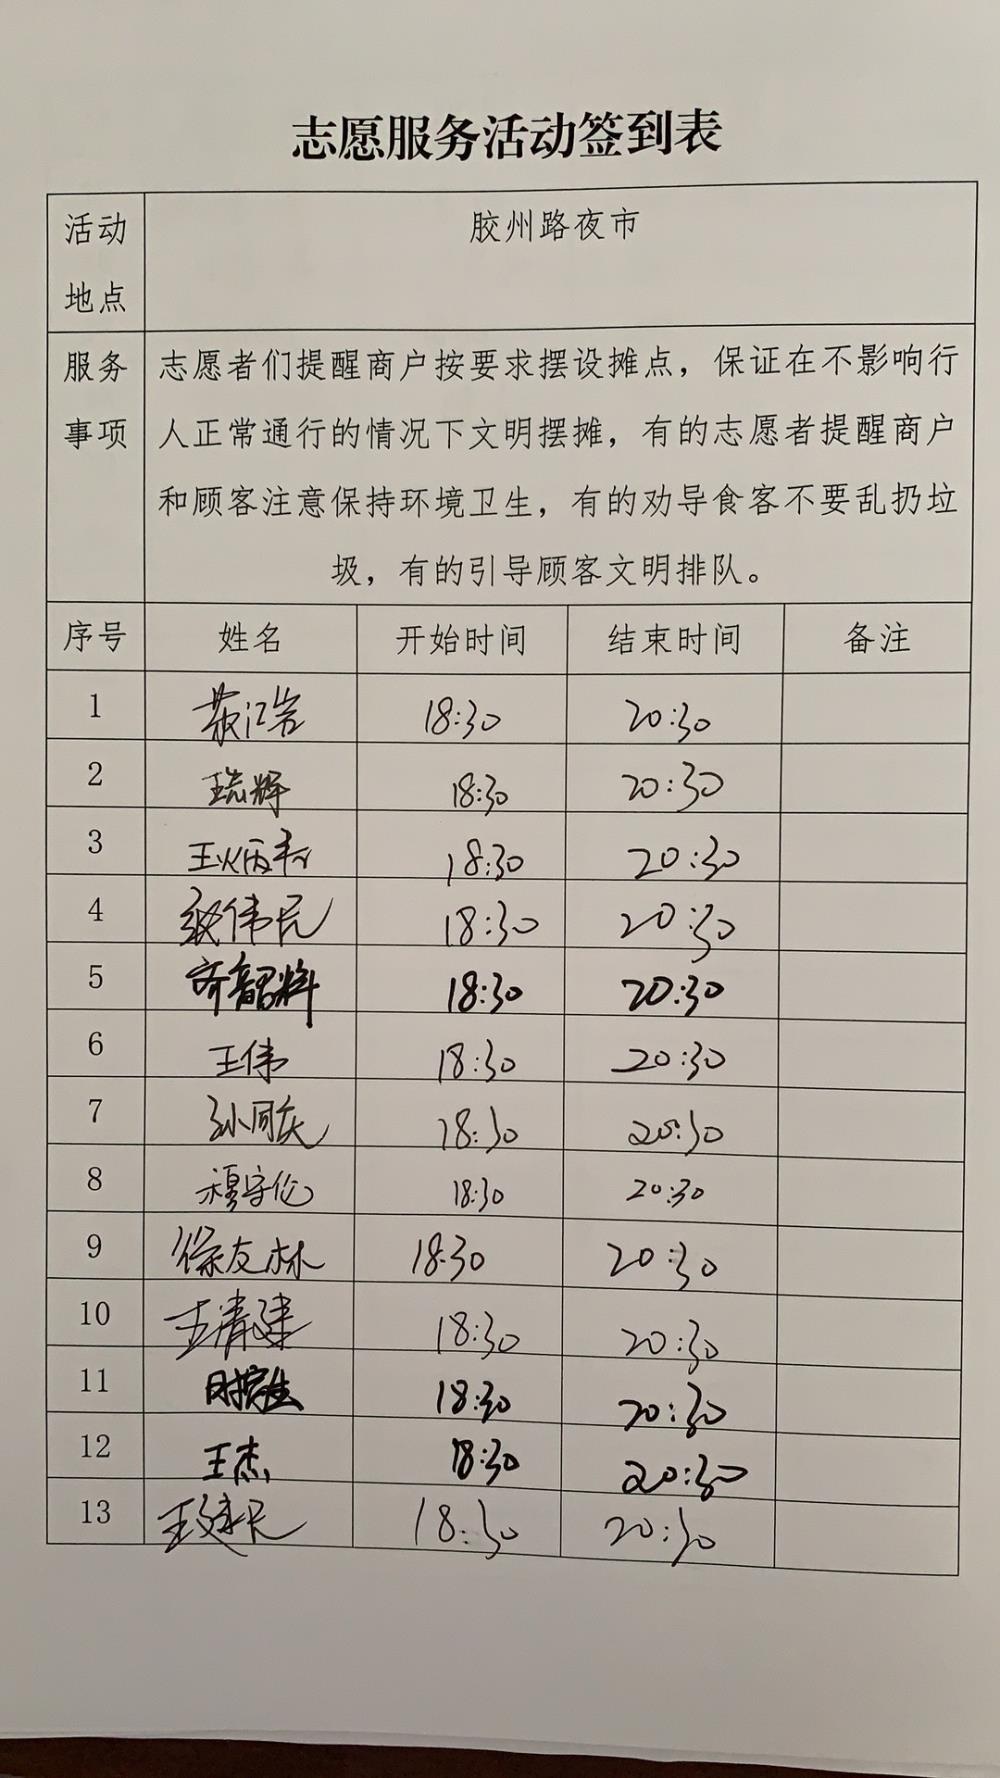 志愿服务活动签到表
活动地点 胶州路夜市
服务事项 志愿者们提醒商户按要求摆设摊点，保证在不影响行
人正常通行的情况下文明摆摊，有的志愿者提醒商户
和顾客注意保持环境卫生，有的劝导食客不要乱扔垃
圾，有的引导顾客文明排队。
序号 姓名 开始时间 结束时间 备注
1 18:30 20:30
2 18:30 20:30
3 18:30 20:30
4 伟民 18:30 20:30
5 18:30 20:30
6 王伟 18:30 20:30
7 孙同庆 18:30 20:30
8 穆守伦 18:30 20:30
9 徐友林 18:30 20:30
10 王清建 18:30 20:30
11 18:30 20:30
12 王杰 18:30 20:30
13 王建 18:30 20:30